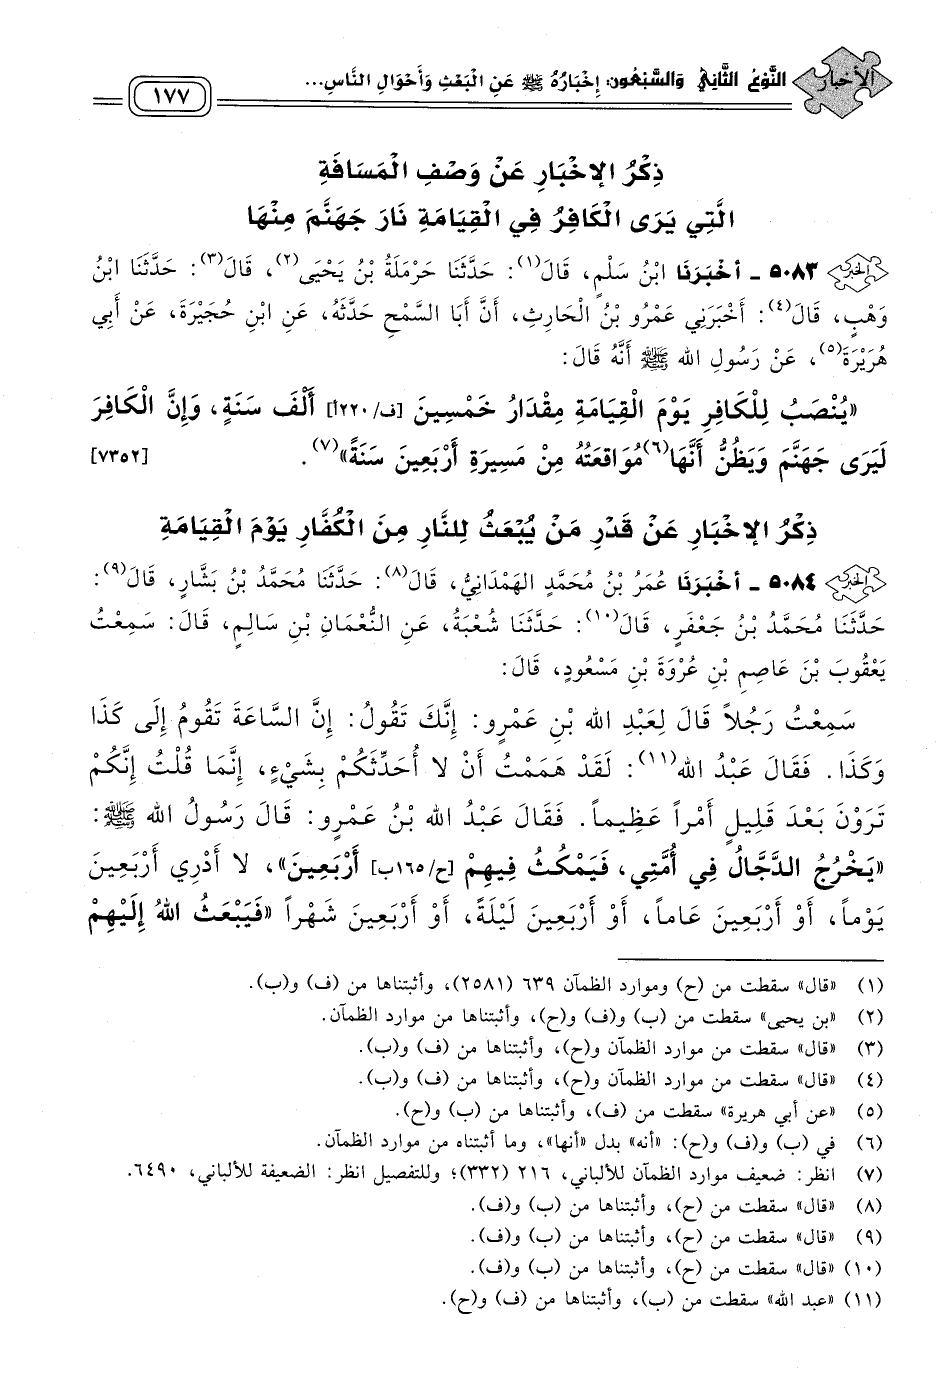 الأخبار
النَّوْعُ الثَّانِي وَالسَّبْعُون: إِخْبَارُهُ ﷺ عَنِ الْبَعْثِ وَأَحْوَالِ النَّاسِ...
١٧٧
ذِكْرُ الإِخْبَارِ عَنْ وَصْفِ الْمَسَافَةِ
الَّتِي يَرَى الْكَافِرُ فِي الْقِيَامَةِ نَارَ جَهَنَّمَ مِنْهَا
٥٠٨٣ ـ أَخْبَرَنَا ابْنُ سَلْمٍ، قَالَ(١): حَدَّثَنَا حَرْمَلَةُ بْنُ يَحْيَى(٢)، قَالَ(٣): حَدَّثَنَا ابْنُ
وَهْبٍ، قَالَ(٤): أَخْبَرَنِي عَمْرُو بْنُ الْحَارِثِ، أَنَّ أَبَا السَّمْحِ حَدَّثَهُ، عَنِ ابْنِ حُجَيْرَةَ، عَنْ أَبِي
هُرَيْرَةَ(٥)، عَنْ رَسُولِ الله ﷺ أَنَّهُ قَالَ:
«يُنْصَبُ لِلْكَافِرِ يَوْمَ الْقِيَامَةِ مِقْدَارُ خَمْسِينَ [ف/٢٢٠أ] أَلْفَ سَنَةٍ، وَإِنَّ الْكَافِرَ
لَيَرَى جَهَنَّمَ وَيَظُنُّ أَنَّهَا(٦) مُوَاقَعَتُهُ مِنْ مَسِيرَةِ أَرْبَعِينَ سَنَةً»(٧). [٧٣٥٢]
ذِكْرُ الإِخْبَارِ عَنْ قَدْرِ مَنْ يُبْعَثُ لِلنَّارِ مِنَ الْكُفَّارِ يَوْمَ الْقِيَامَةِ
٥٠٨٤ ـ أَخْبَرَنَا عُمَرُ بْنُ مُحَمَّدٍ الهَمْدَانِيُّ، قَالَ(٨): حَدَّثَنَا مُحَمَّدُ بْنُ بَشَّارٍ، قَالَ(٩):
حَدَّثَنَا مُحَمَّدُ بْنُ جَعْفَرٍ، قَالَ(١٠): حَدَّثَنَا شُعْبَةُ، عَنِ النُّعْمَانِ بْنِ سَالِمٍ، قَالَ: سَمِعْتُ
يَعْقُوبَ بْنَ عَاصِمِ بْنِ عُرْوَةَ بْنِ مَسْعُودٍ، قَالَ:
سَمِعْتُ رَجُلاً قَالَ لِعَبْدِ الله بْنِ عَمْرٍو: إِنَّكَ تَقُولُ: إِنَّ السَّاعَةَ تَقُومُ إِلَى كَذَا
وَكَذَا. فَقَالَ عَبْدُ الله(١١): لَقَدْ هَمَمْتُ أَنْ لا أُحَدِّثَكُمْ بِشَيْءٍ، إِنَّمَا قُلْتُ إِنَّكُمْ
تَرَوْنَ بَعْدَ قَلِيلٍ أَمْراً عَظِيماً. فَقَالَ عَبْدُ الله بْنُ عَمْرٍو: قَالَ رَسُولُ الله ﷺ:
«يَخْرُجُ الدَّجَّالُ فِي أُمَّتِي، فَيَمْكُثُ فِيهِمْ [ح/١٦٥ب] أَرْبَعِينَ»، لا أَدْرِي أَرْبَعِينَ
يَوْماً، أَوْ أَرْبَعِينَ عَاماً، أَوْ أَرْبَعِينَ لَيْلَةً، أَوْ أَرْبَعِينَ شَهْراً «فَيَبْعَثُ اللهُ إِلَيْهِمْ
(١) «قال» سقطت من (ح) وموارد الظمآن ٦٣٩ (٢٥٨١)، وأثبتناها من (ف) و(ب).
(٢) «بن يحيى» سقطت من (ب) و(ف) و(ح)، وأثبتناها من موارد الظمآن.
(٣) «قال» سقطت من موارد الظمآن و(ح)، وأثبتناها من (ف) و(ب).
(٤) «قال» سقطت من موارد الظمآن و(ح)، وأثبتناها من (ف) و(ب).
(٥) «عن أبي هريرة» سقطت من (ف)، وأثبتناها من (ب) و(ح).
(٦) في (ب) و(ف) و(ح): «أنه» بدل «أنها»، وما أثبتناه من موارد الظمآن.
(٧) انظر: ضعيف موارد الظمآن للألباني، ٢١٦ (٣٣٢)؛ وللتفصيل انظر: الضعيفة للألباني، ٦٤٩٠.
(٨) «قال» سقطت من (ح)، وأثبتناها من (ب) و(ف).
(٩) «قال» سقطت من (ح)، وأثبتناها من (ب) و(ف).
(١٠) «قال» سقطت من (ح)، وأثبتناها من (ب) و(ف).
(١١) «عبد الله» سقطت من (ب)، وأثبتناها من (ف) و(ح).